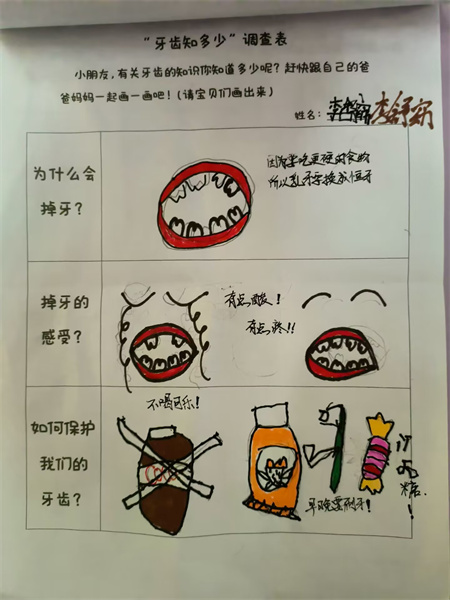 “牙齿知多少”调查表
小朋友,有关牙齿的知识你知道多少呢?赶快跟自己的爸
爸妈妈一起画一画吧!(请宝贝们画出来)
姓名:
为什么会
掉牙?
因为要吃更硬的食物
所以乳牙要换成恒牙
掉牙的
感受?
有点酸!
有点疼!!
如何保护
我们的
牙齿?
不喝可乐!
早晚要刷牙!
少吃
糖.
!